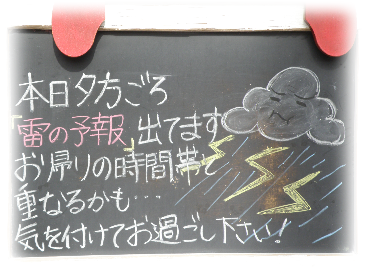 本日夕方ごろ
「雷の予報」出てます
お帰りの時間帯と
重なるかも…
気を付けてお過ごし下さい!